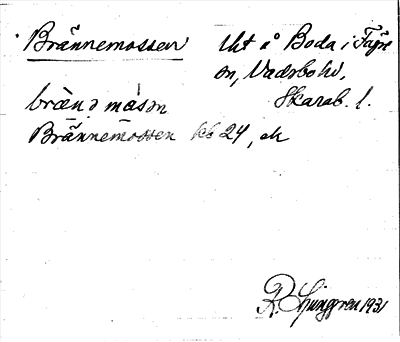 Brännemossen
Utt å Boda i Fägre
sn, Vadsbo hd,
Skarab. l.
brænd måsən
Brännemossen kb 24, ek
R. Ljunggren 1931